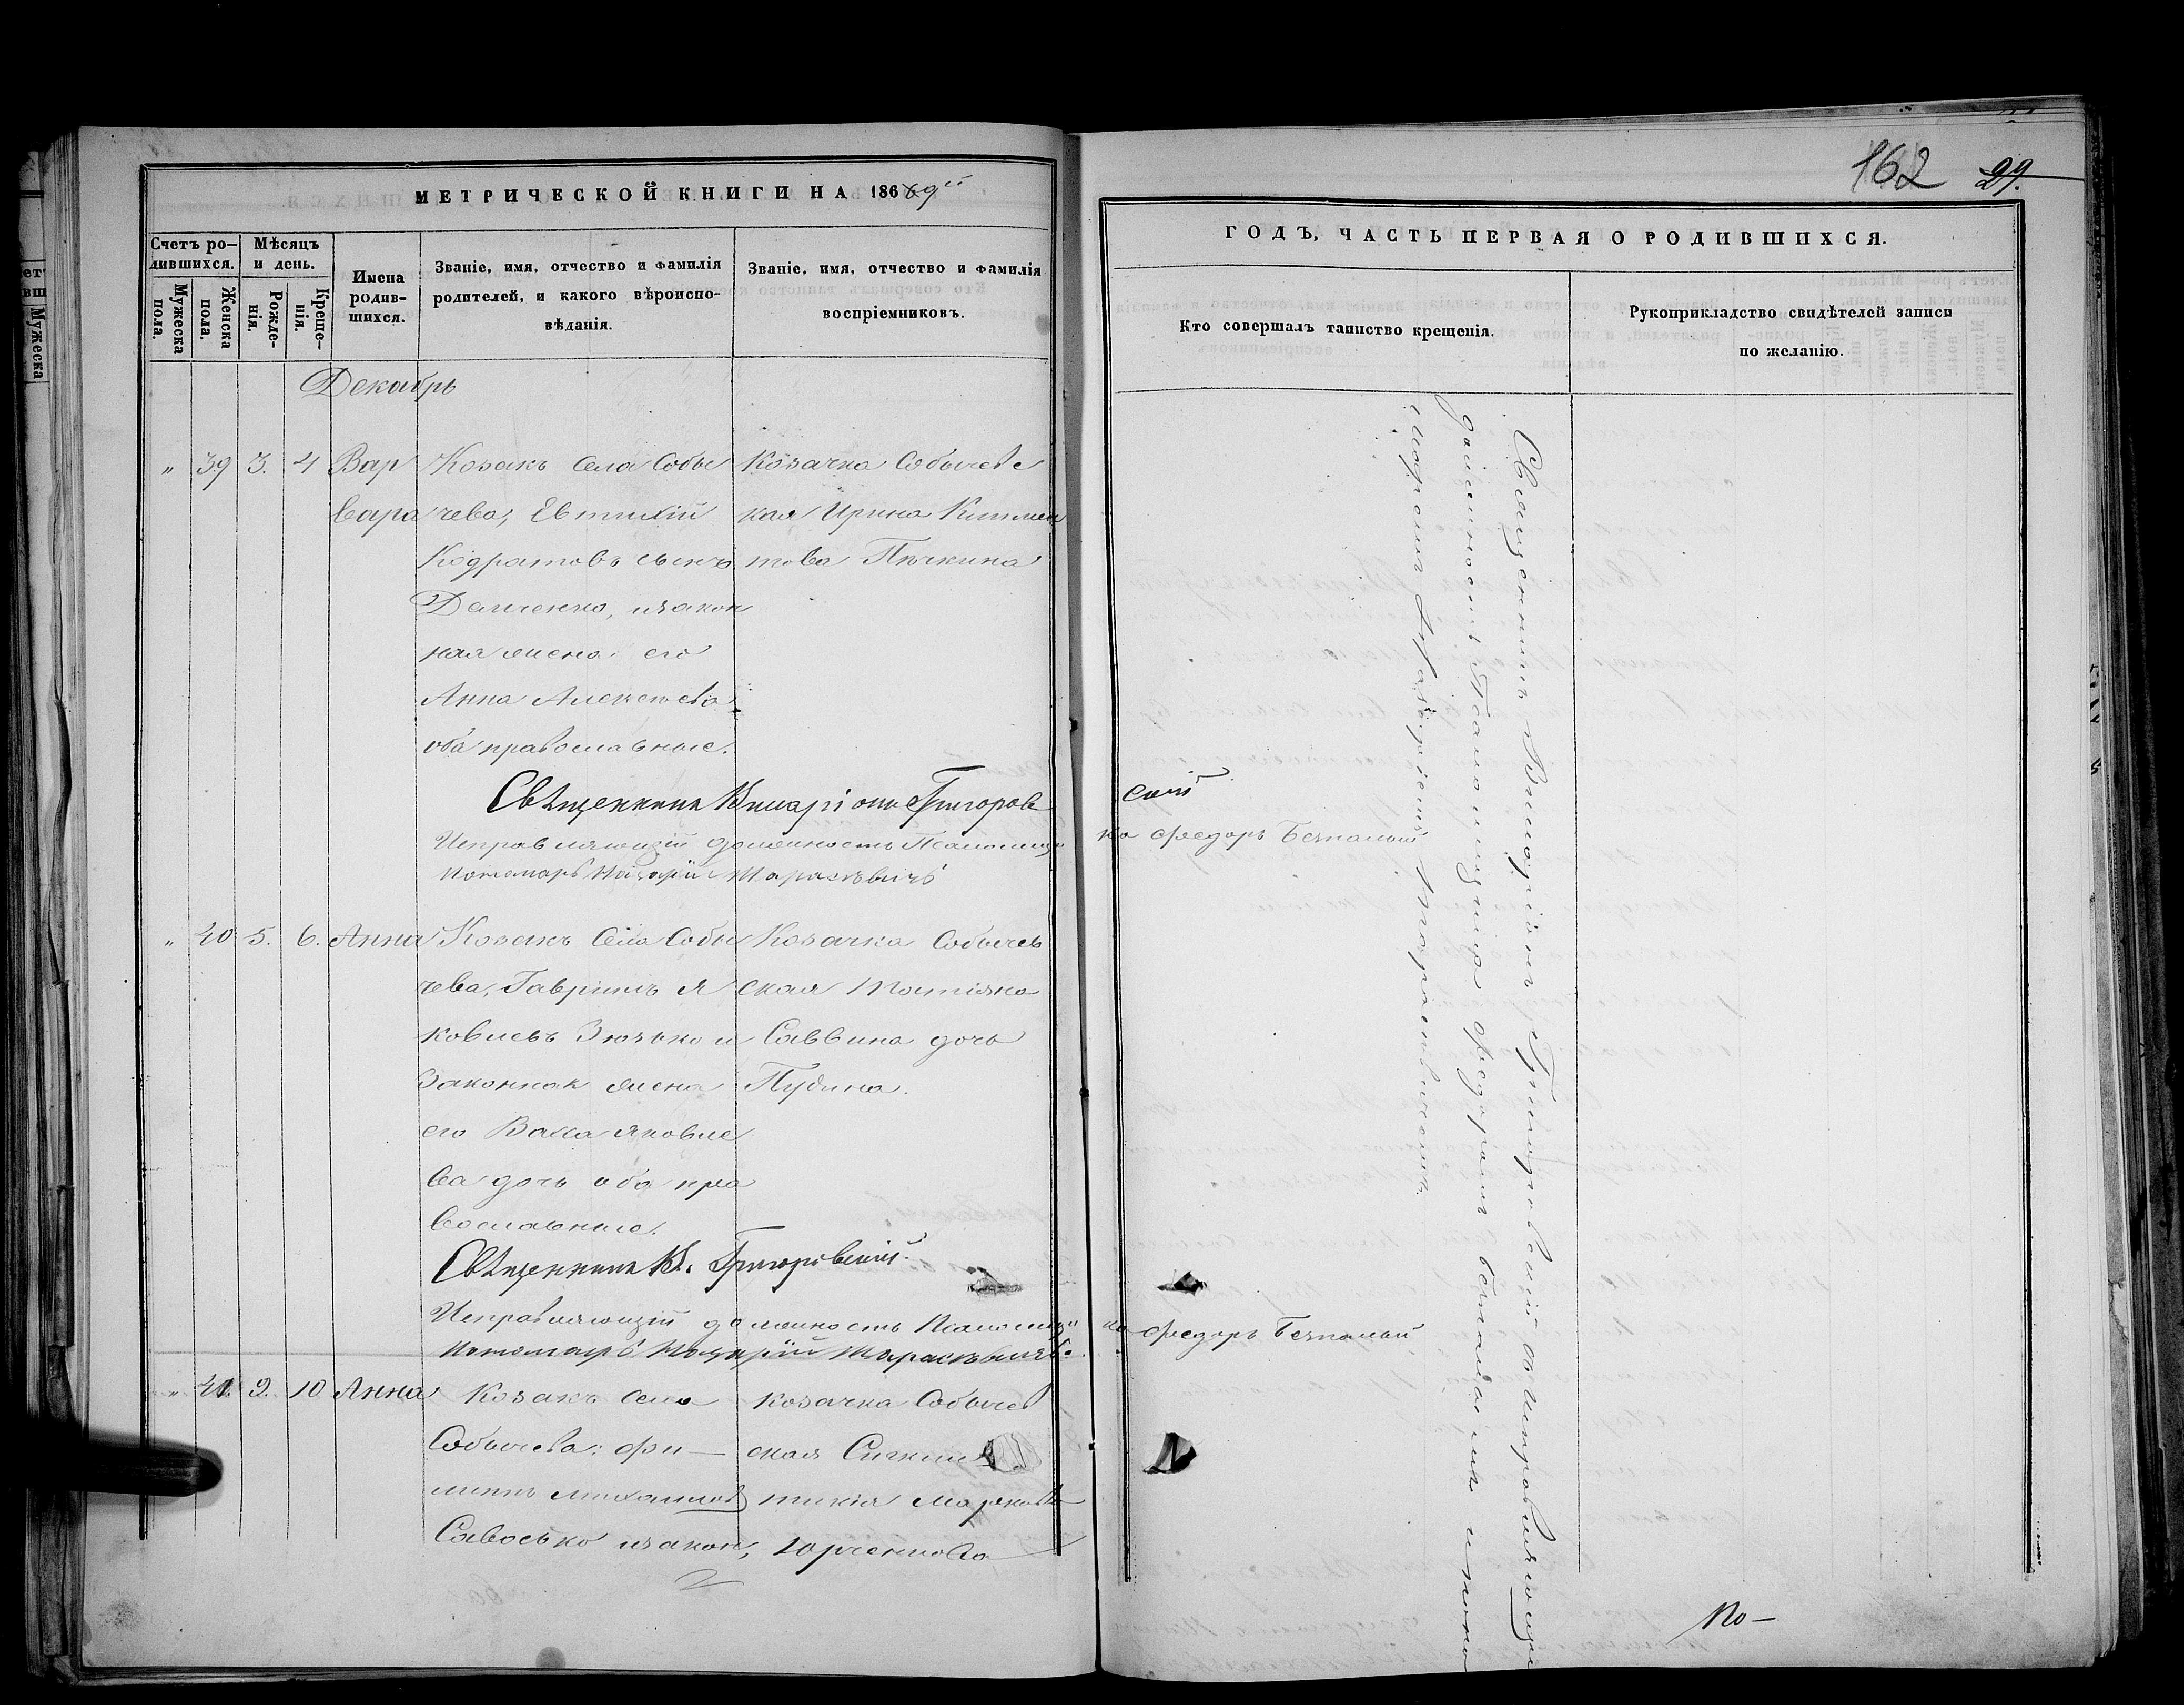 МЕТРИЧЕСКОЙ КНИГИ НА 1869й
Счетъ ро-
дившихся.
Мужеска
пола.
Женска
пола.
Мѣсяцъ
и день.
Рожде-
нія.
Креще-
нія.
Имена
родив-
шихся.
Званіе, имя, отчество и фамилія
родителей, и какого вѣроиспо-
вѣданія.
Званіе, имя, отчество и фамилія
воспріемниковъ.
Декабрь
„ 39 3. 4 Вар
вара
Козакъ села Собы
чева, Евтихій
Кодратовъ сынъ
Демченко, изакон
ная жена его
Анна Алексѣева
оба православные.
Козачка Собычевс
кая Ирина
това Пѣчкина
Священникъ Иларіонъ Григоров
Исправляющій должность Псаломщи
Пономарь Назарій Тарасѣвичъ
„ 40 5. 6. Анна
Козакъ Села Собы
чева, Гавріилъ Я
ковлевъ Зюзько и
Законная жена
его Васса Яковле
ва дочь оба пра
вославные.
Козачка Собычев
ская Татіяна
Саввина дочь
Пудина.
Священникъ И. Григоровскій.
Исправляющій должность Псаломщи
Пономарь Назарій Тарасѣвичъ.
„ 41. 9. 10 Анна
Козакъ села
Собычева: Фи—
липъ Михаилов
Савосько изакон,
козачка Собычев
ская
Маркова
Юрченкова
162 29.
ГОДЪ, ЧАСТЬ ПЕРВАЯ О РОДИВШИХСЯ.
Кто совершалъ таинство крещенія.
Рукоприкладство свидѣтелей записи
по желанію.
скій
ка Федоръ Безпалый
ка Федоръ Безпалый
Священникъ Иларіонъ Григоровскій съ исправляющи
должность Псаломщика Федоромъ Безпалымъ и поно
маремъ Назаріемъ Тарасѣвичемъ.
No—